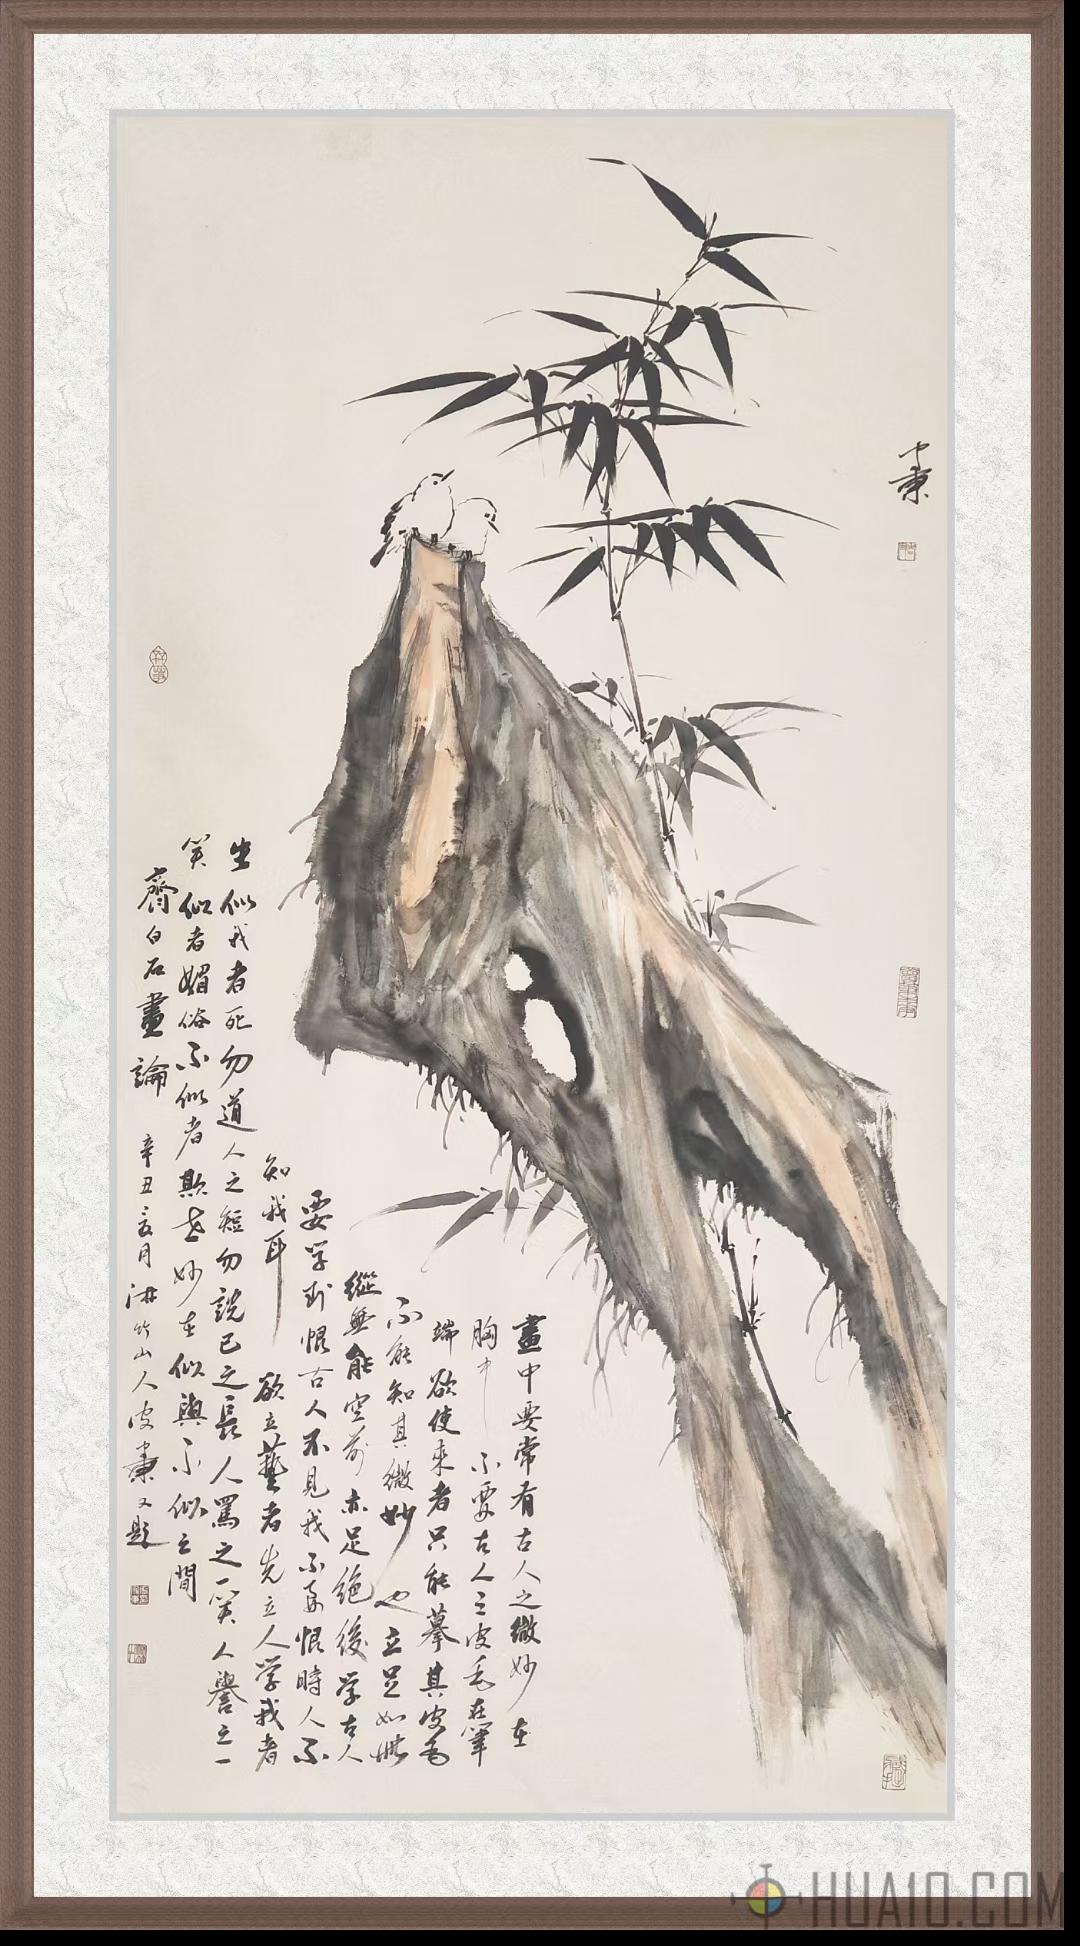 畫中要常有古人之微妙在
胸中不要古人之皮毛在筆
端欲使來者只能摹其皮毛
不能知其微妙也立足如此
縱無能空前亦足絕後學古人
要學到恨古人不見我不要恨時人不
知我耳
欲立藝者先立人學我者
生似我者死勿道人之短勿說己之長人罵之一笑人譽之一
笑似者媚俗不似者欺世妙在似與不似之間
齊白石畫論
辛丑夏月沐竹山人皮秉又題
HUA10.COM